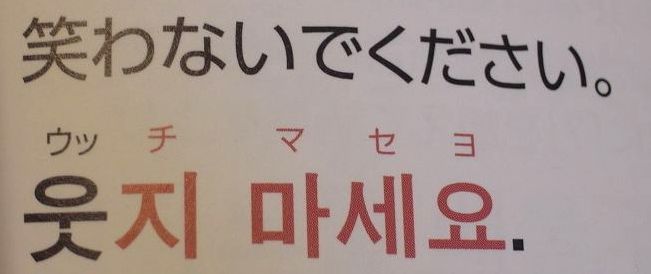 笑わないでください。
ウッ チ マ セ ヨ
웃지 마세요.